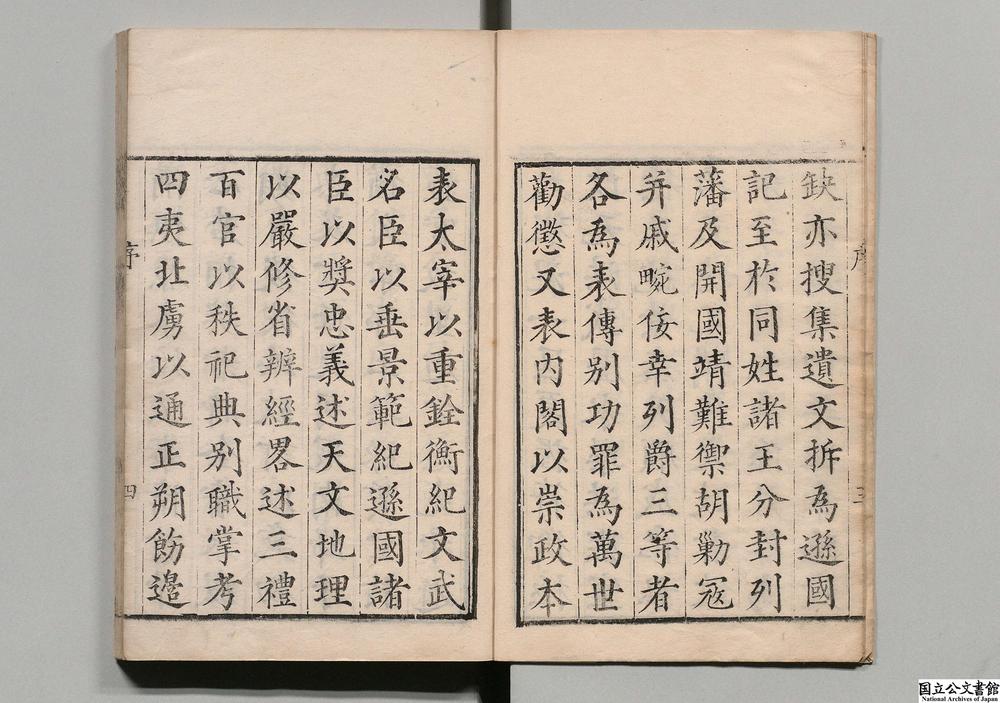 缺亦搜集遺文拆為遜國
記至於同姓諸王分封列
藩及開國靖難禦胡勦冦
并戚畹佞幸列爵三等者
各為表傳别功罪為萬世
勸懲又表内閣以崇政本
序
三
表太宰以重銓衡紀文武
名臣以垂景範紀遜國諸
臣以奨忠義述天文地理
以嚴修省辨經畧述三禮
百官以秩祀典别職掌考
四夷北虜以通正朔飭邉
序
四
国立公文書館
National Archives of Japan